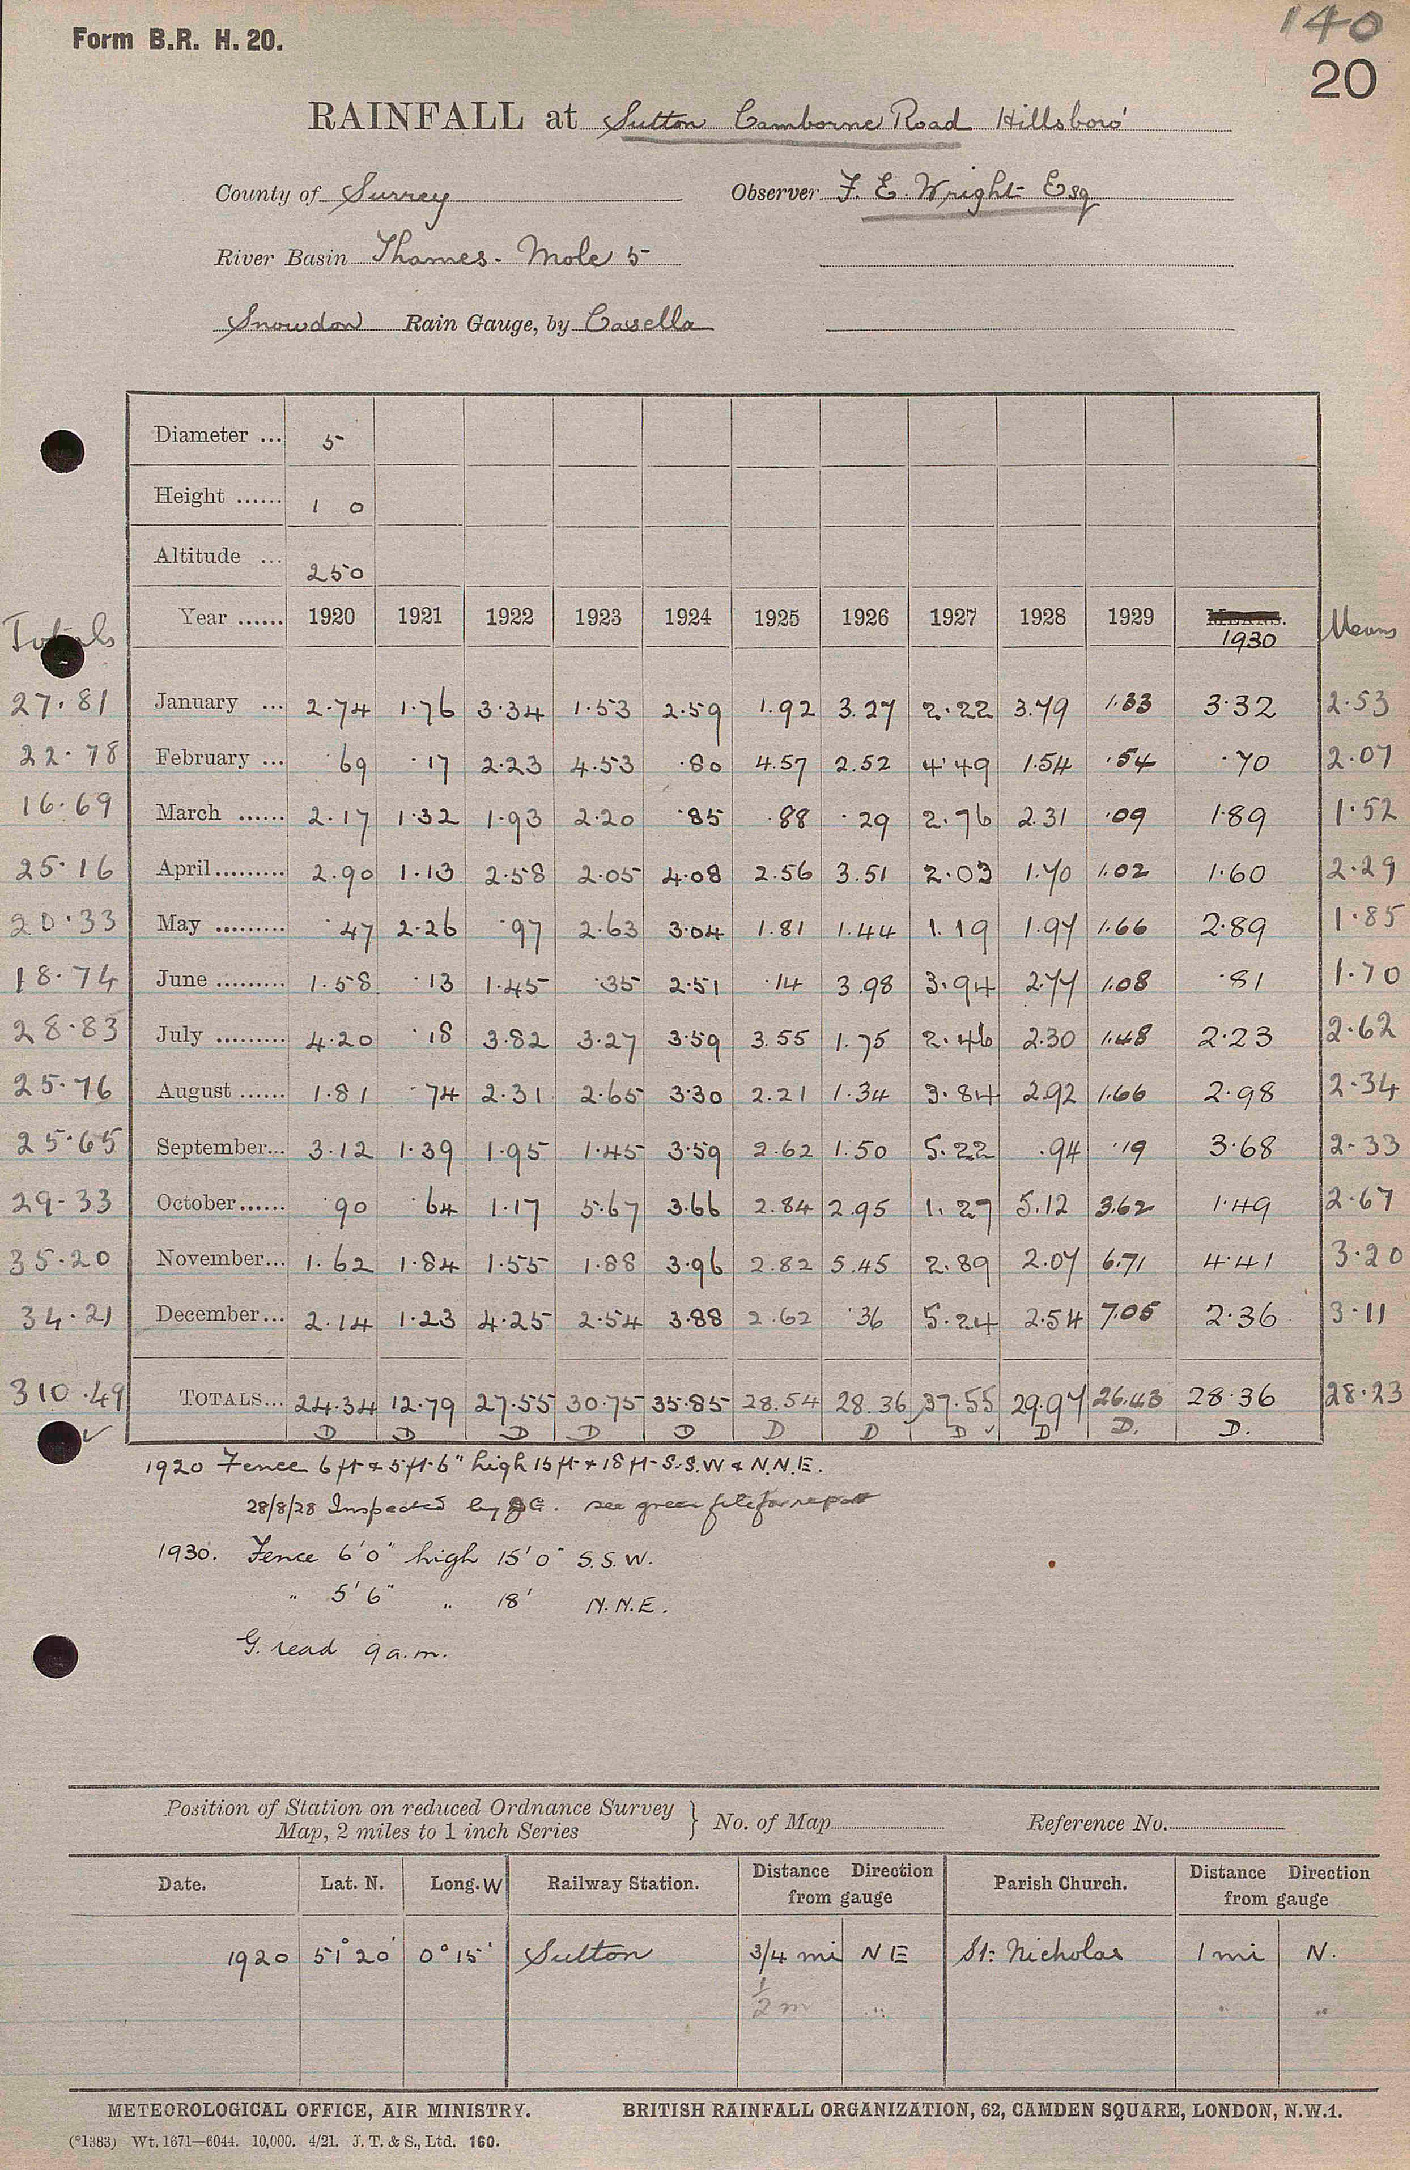 140
Form B.R. H. 20.
20
RAINFALL at Sutton Camborne Road Hillsboro'
County of Surrey Observer F. E. Wright Esq
River Basin Thames - Mole 5
Snowdon Rain Gauge, by Casella
Diameter ... 5
Height ...... 1 0
Altitude ... 250
Totals Year ...... 1920 1921 1922 1923 1924 1925 1926 1927 1928 1929 1930 Means
27.81 January ... 2.74 1.76 3.34 1.53 2.59 1.92 3.27 2.22 3.79 1.33 3.32 2.53
22.78 February ... .69 .17 2.23 4.53 .80 4.57 2.52 4.49 1.54 .54 .70 2.07
16.69 March ...... 2.17 1.32 1.93 2.20 .85 .88 .29 2.76 2.31 .09 1.89 1.52
25.16 April......... 2.90 1.13 2.58 2.05 4.08 2.56 3.51 2.03 1.70 1.02 1.60 2.29
20.33 May ......... .47 2.26 .97 2.63 3.04 1.81 1.44 1.19 1.97 1.66 2.89 1.85
18.74 June ......... 1.58 .13 1.45 .35 2.51 .14 3.98 3.94 2.77 1.08 .81 1.70
28.83 July ......... 4.20 .18 3.82 3.27 3.59 3.55 1.75 2.46 2.30 1.48 2.23 2.62
25.76 August ...... 1.81 .74 2.31 2.65 3.30 2.21 1.34 3.84 2.92 1.66 2.98 2.34
25.65 September... 3.12 1.39 1.95 1.45 3.59 2.62 1.50 5.22 .94 .19 3.68 2.33
29.33 October...... .90 .64 1.17 5.67 3.66 2.84 2.95 1.27 5.12 3.62 1.49 2.67
35.20 November... 1.62 1.84 1.55 1.88 3.96 2.82 5.45 2.89 2.07 6.71 4.41 3.20
34.21 December... 2.14 1.23 4.25 2.54 3.88 2.62 .36 5.24 2.54 7.05 2.36 3.11
310.49 TOTALS... 24.34 12.79 27.55 30.75 35.85 28.54 28.36 37.55 29.97 26.43 28.36 28.23
✓ D D D D D D D D ✓ D D. D.
1920 Fence 6 ft & 5 ft 6" high 15 ft & 18 ft S.S.W & N.N.E.
28/8/28 Inspected by G. see green file for report
1930. Fence 6'0" high 15'0" S.S.W.
" 5'6" " 18' N.N.E.
G. read 9 a.m.
Position of Station on reduced Ordnance Survey
Map, 2 miles to 1 inch Series } No. of Map Reference No.
Date. Lat. N. Long. W Railway Station. Distance Direction from gauge Parish Church. Distance Direction from gauge
1920 51° 20' 0° 15' Sutton 3/4 mi N E St. Nicholas 1 mi N.
1/2 m " " "
METEOROLOGICAL OFFICE, AIR MINISTRY. BRITISH RAINFALL ORGANIZATION, 62, CAMDEN SQUARE, LONDON, N.W.1.
(*1383) Wt. 1671—6044. 10,000. 4/21. J. T. & S., Ltd. 160.